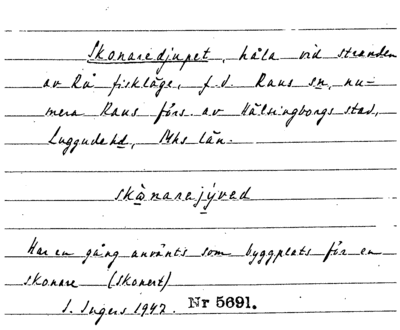 Skonaredjupet, håla vid stranden
av Rå fiskläge, f.d. Raus sn, nu-
mera Raus förs. av Hälsingborgs stad,
Luggude hd, Mhs län.
skònarejýved
Har en gång använts som byggplats för en
skonare (skonert)
I. Ingers 1942. Nr 5691.